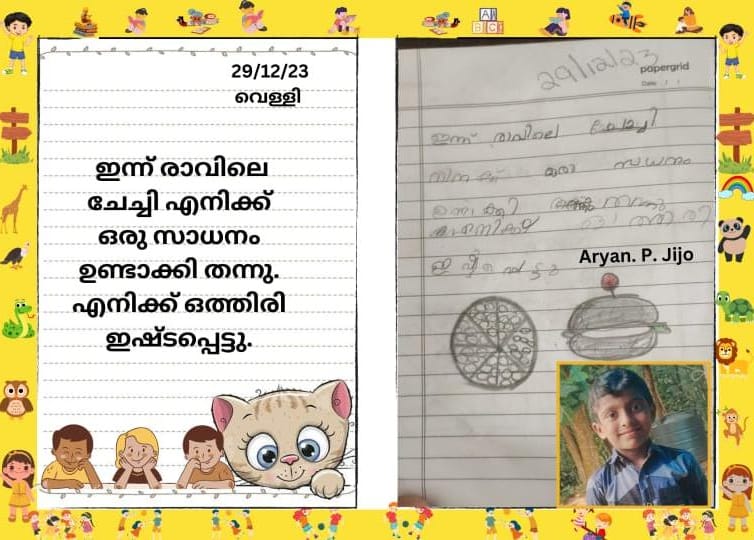 29/12/23
വെള്ളി
ഇന്ന് രാവിലെ
ചേച്ചി എനിക്ക്
ഒരു സാധനം
ഉണ്ടാക്കി തന്നു.
എനിക്ക് ഒത്തിരി
ഇഷ്ടപ്പെട്ടു.
29/12/23
papergrid
Date: / /
ഇന്ന് രാവിലെ ചേച്ചി
ഒരു സധനം
Aryan. P. Jijo
A B
B C